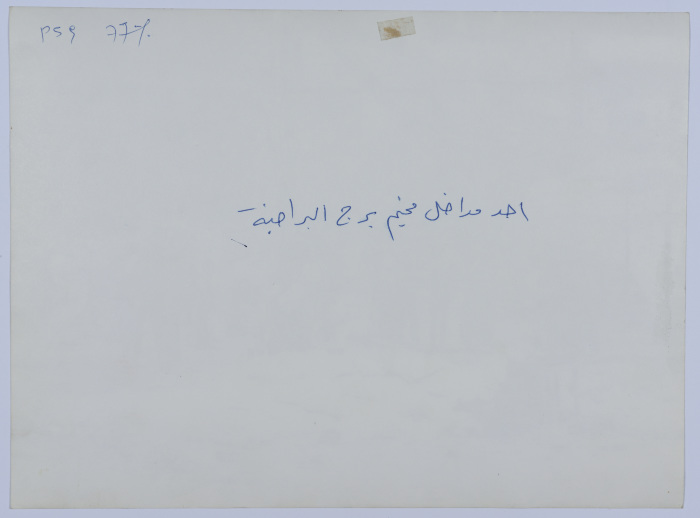 P59 77%
احد مداخل مخيم برج البراجنة